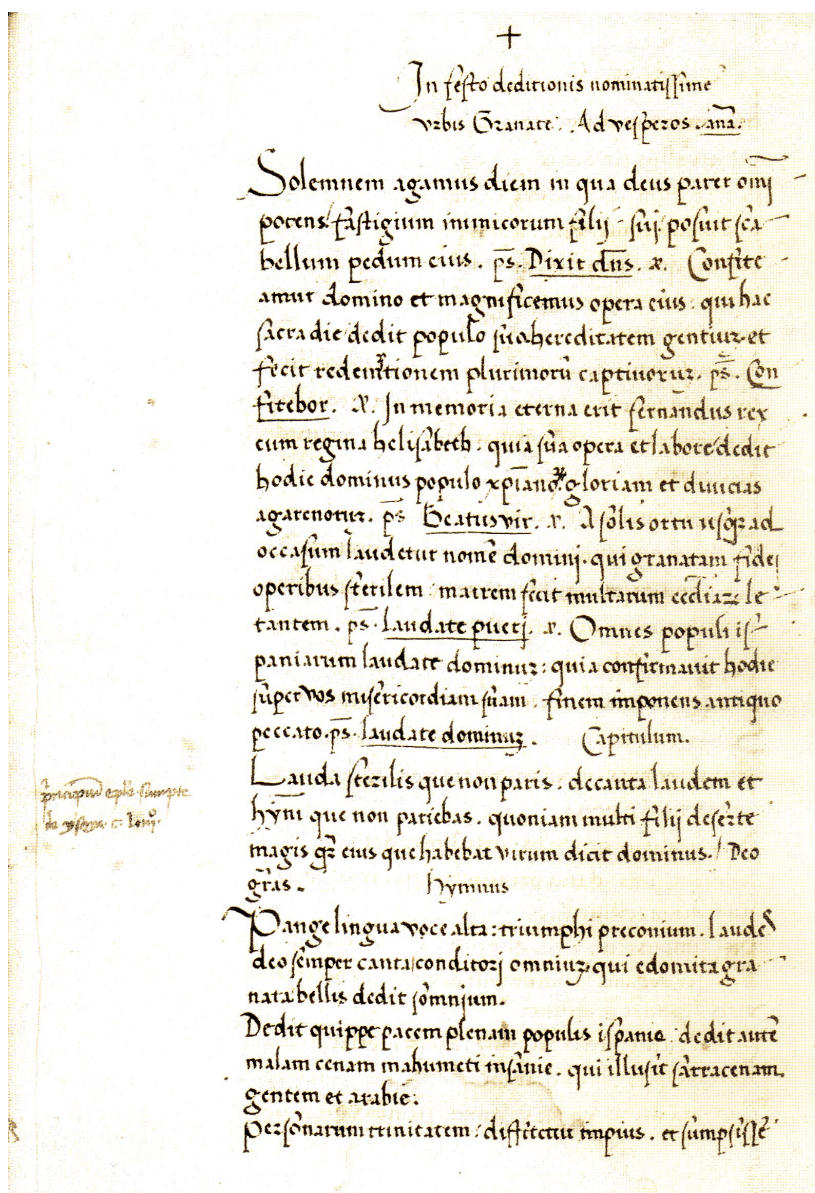 +
In festo deditionis nominatissime
vrbis Granate. Ad vesperos. anã.
Solemnem agamus diem in qua deus pater omi
potens fastigium inimicorum filij sui posuit sca
bellum pedum eius. ps̃. Dixit dñs. a. Confite
amur domino et magnificemus opera eius: qui hac
sacra die dedit populo suo hereditatem gentiuz et
fecit redemptionem plurimorũ captiuoruz. ps̃. Con
fitebor. a. In memoria eterna erit fernandus rex
cum regina helisabeth: quia sua opera et labore dedit
hodie dominus populo xp̃iano gloriam et diuicias
agarenoruz. ps̃ Beatus vir. a. A solis ortu usqz ad
occasum laudetur nomẽ domini. qui granatam fidei
operibus sterilem: matrem fecit multarum ecclĩaz le
tantem. ps̃. laudate pueri. a. Omnes populi is
paniarum laudate dominuz: quia confirmauit hodie
super vos misericordiam suam. finem imponens antiquo
peccato. ps̃. laudate dominuz. Capitulum.
Lauda sterilis que non paris: decanta laudem et
hỹni que non pariebas. quoniam multi filii deserte
magis qz eius que habebat virum dicit dominus. / Deo
grãs. hymnus
Pange lingua voce alta: triumphi preconium. laudes
deo semper canta conditori omniuz. qui edomita gra
nata bellis dedit somnium.
Dedit quippe pacem plenam populis ispanie dedit autẽ
malam cenam mahumeti insanie. qui illusit sarracenam
gentem et arabie.
Personarum trinitatem: diffitetur impius. et sumpsissẽ